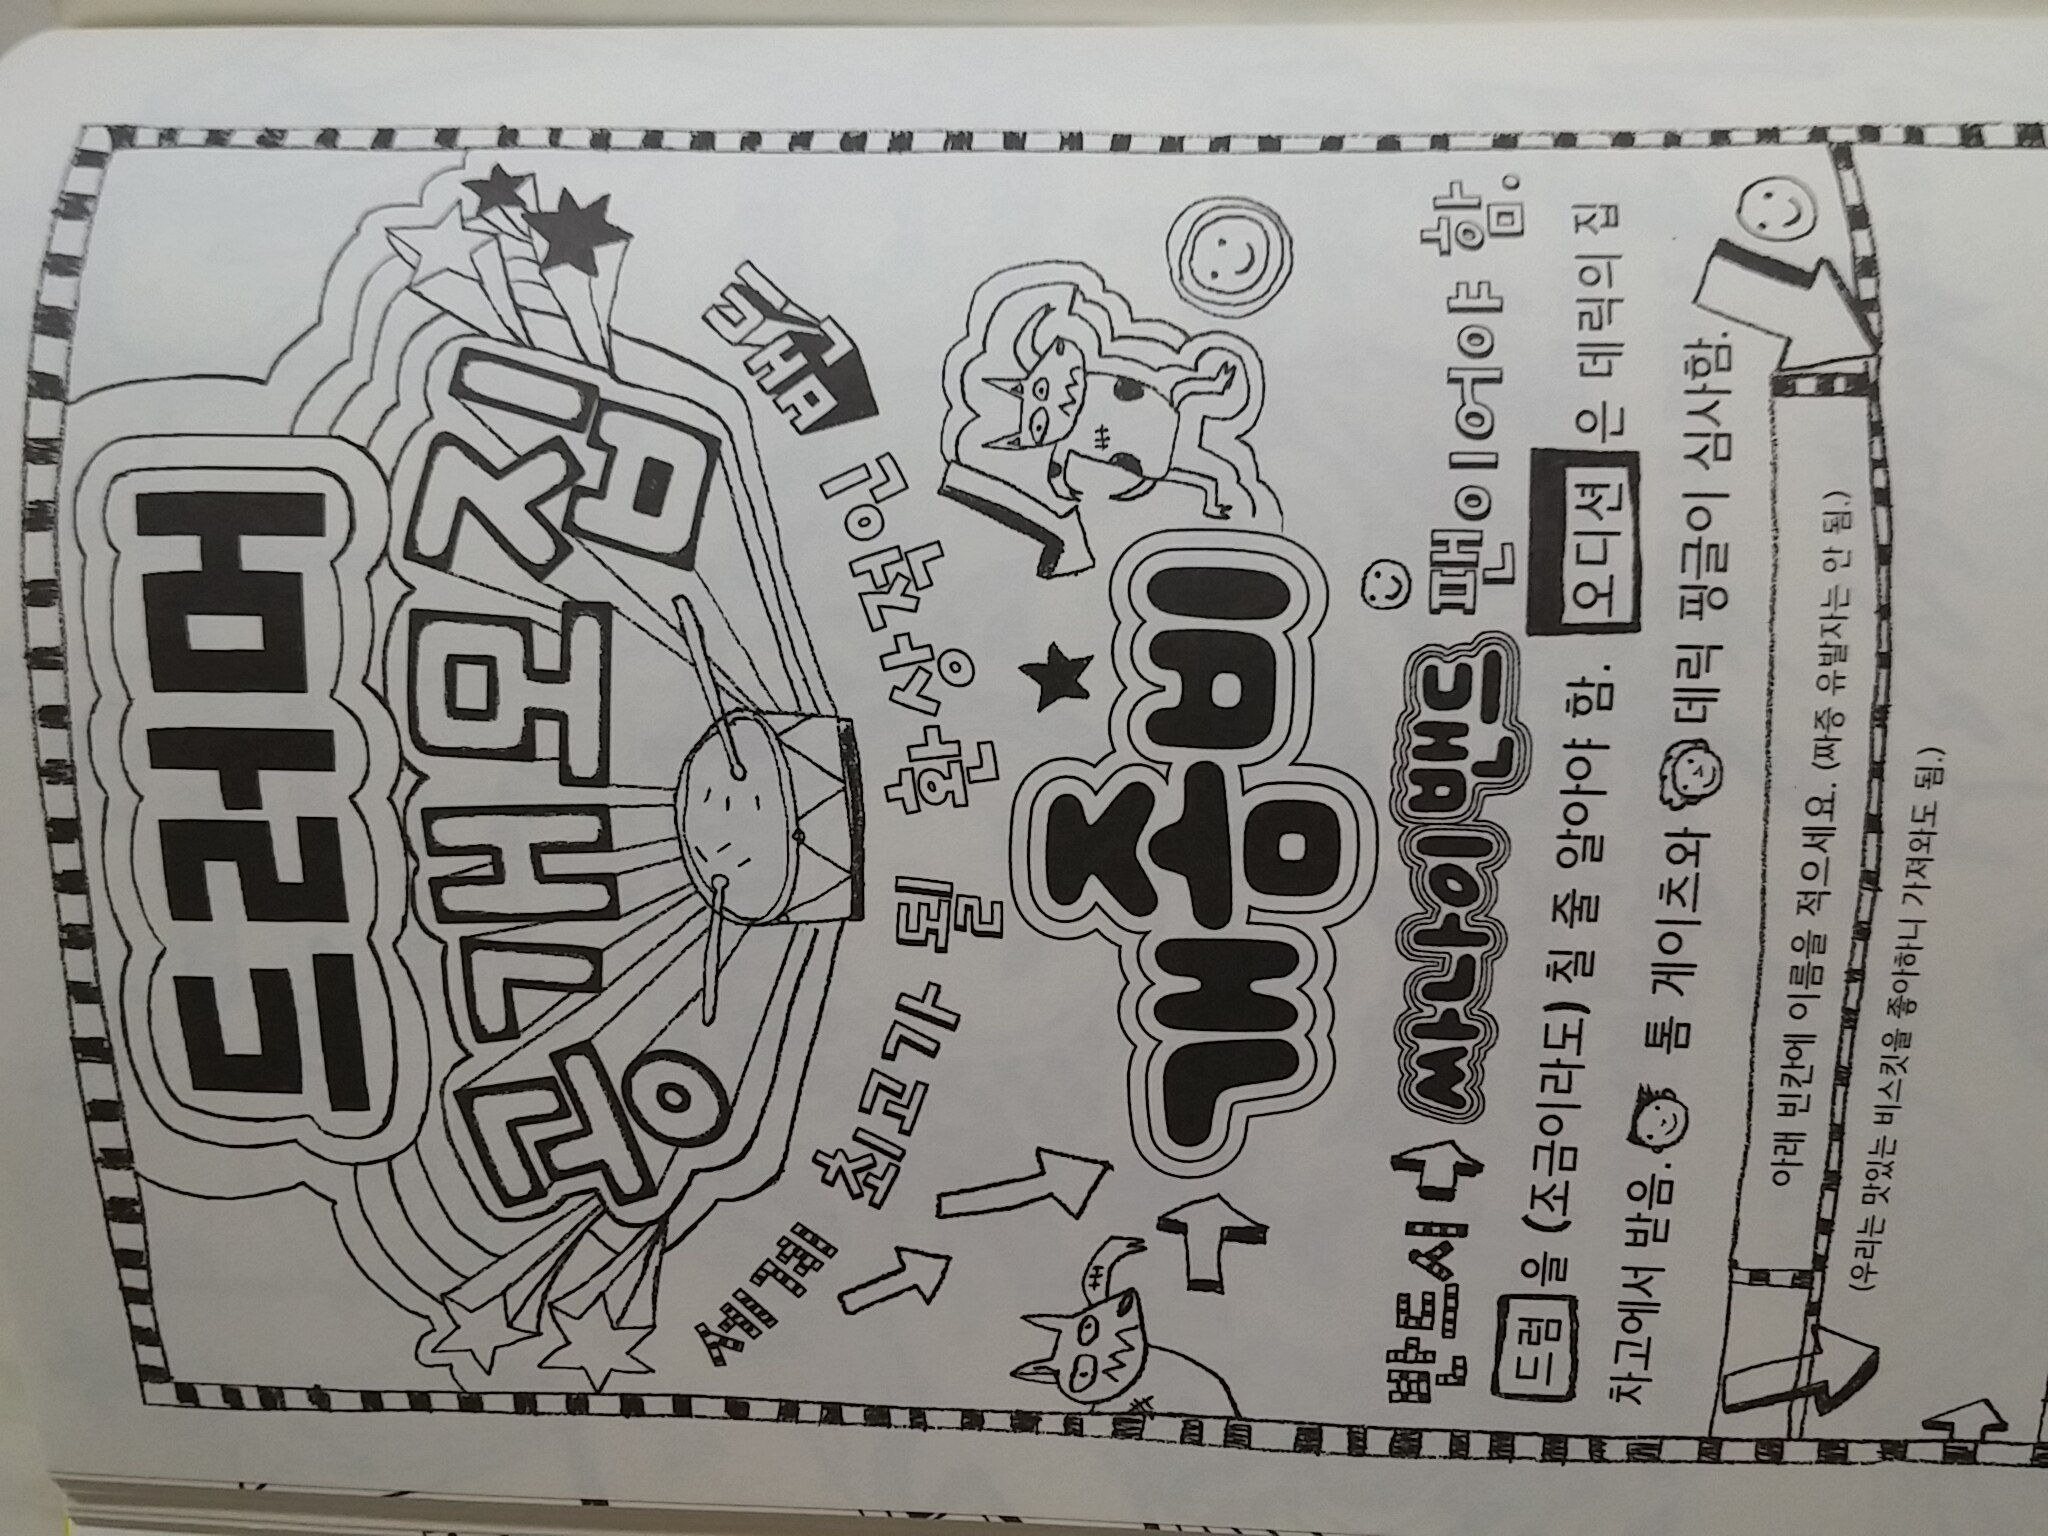 드러머
공개모집
세계 최고가 될 환상적인 밴드
개좀비
반드시 써나이밴드 팬이어야 함.
드럼을 (조금이라도) 칠 줄 알아야 함. 오디션은 데릭의 집
차고에서 받음. 톰 게이츠와 데릭 핑글이 심사함.
아래 빈칸에 이름을 적으세요. (짜증 유발자는 안 됨.)
(우리는 맛있는 비스킷을 좋아하니 가져와도 됨.)